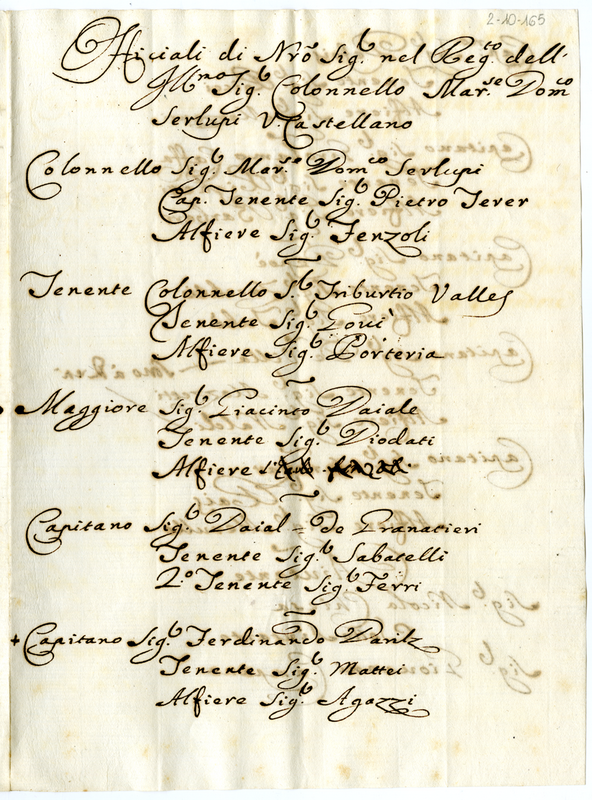 2-10-165
Officiali di Nrõ Sig.r nel Reg.to dell'
Ill.mo Sig.r Colonnello Mar.se Dom.co
Serlupi V. Castellano
Colonnello Sig.r Mar.se Dom.co Serlupi
Cap. Tenente Sig.r Pietro Terer
Alfiere Sig.r Fenzoli
Tenente Colonnello S.r Tiburtio Valles
Tenente Sig.r
Alfiere Sig.r Porteria
Maggiore Sig.r Giacinto Daiale
Tenente Sig.r Diodati
Alfiere
Capitano Sig.r Daial = de Granatieri
Tenente Sig.r Sabatelli
2.o Tenente Sig.r Ferri
+ Capitano Sig.r Ferdinando
Tenente Sig.r Mattei
Alfiere Sig.r Agazzi